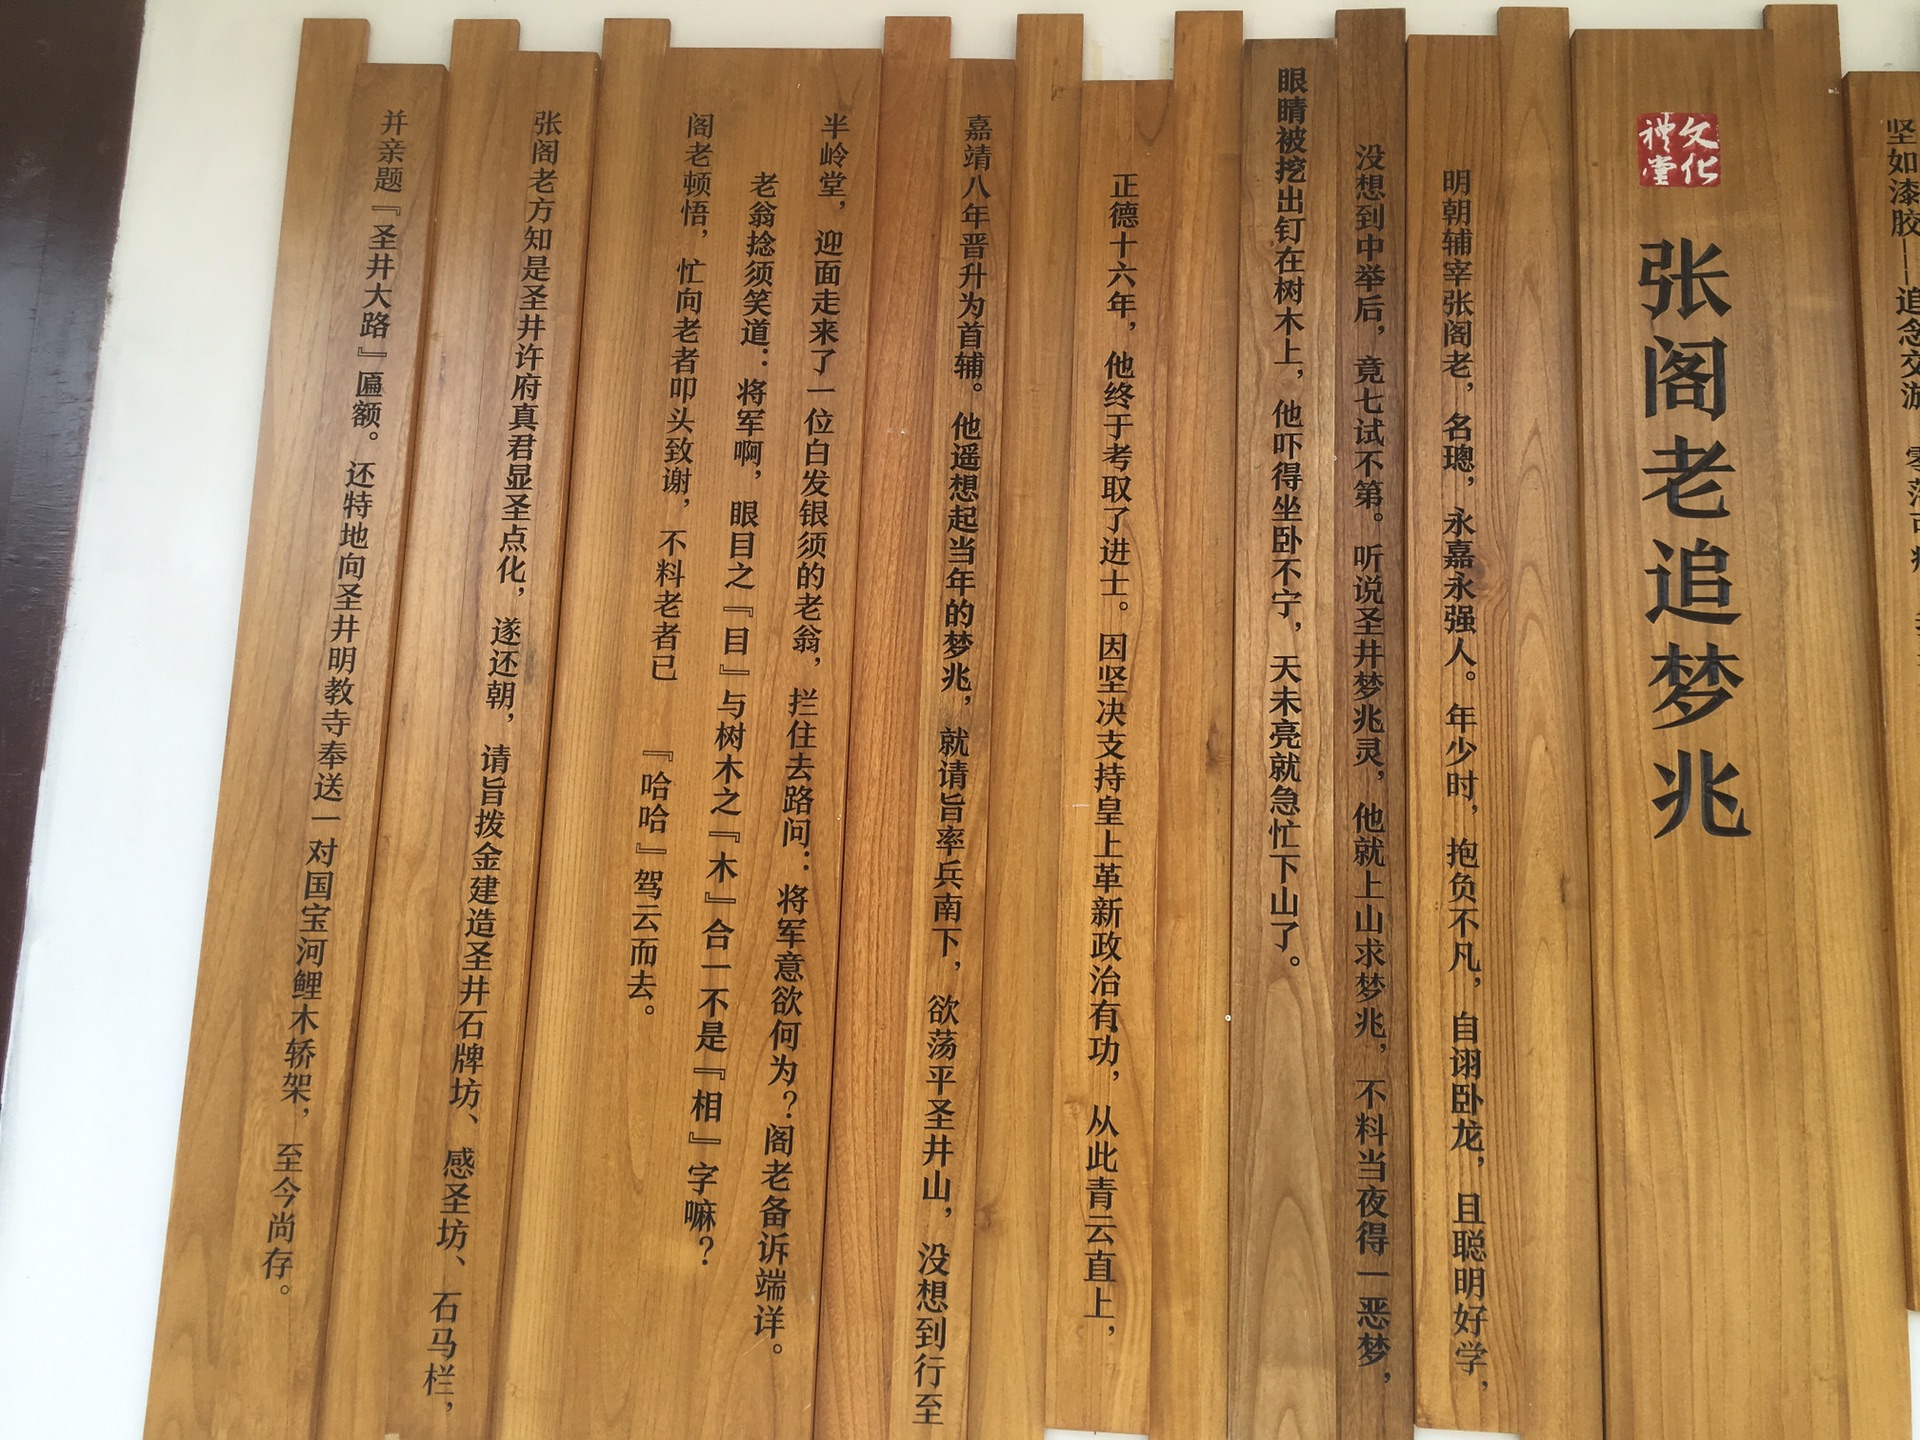 坚如漆胶——追念交游
文化
礼堂
张阁老追梦兆
明朝辅宰张阁老，名璁，永嘉永强人。年少时，抱负不凡，自诩卧龙，且聪明好学，
没想到中举后，竟七试不第。听说圣井梦兆灵，他就上山求梦兆，不料当夜得一恶梦，
眼睛被挖出钉在树木上，他吓得坐卧不宁，天未亮就急忙下山了。
正德十六年，他终于考取了进士。因坚决支持皇上革新政治有功，从此青云直上，
嘉靖八年晋升为首辅。他遥想起当年的梦兆，就请旨率兵南下，欲荡平圣井山，没想到行至
半岭堂，迎面走来了一位白发银须的老翁，拦住去路问：将军意欲何为？阁老备诉端详。
老翁捻须笑道：将军啊，眼目之『目』与树木之『木』合一不是『相』字嘛？
阁老顿悟，忙向老者叩头致谢，不料老者已『哈哈』驾云而去。
张阁老方知是圣井许府真君显圣点化，遂还朝，请旨拨金建造圣井石牌坊、感圣坊、石马栏，
并亲题『圣井大路』匾额。还特地向圣井明教寺奉送一对国宝河鲤木轿架，至今尚存。